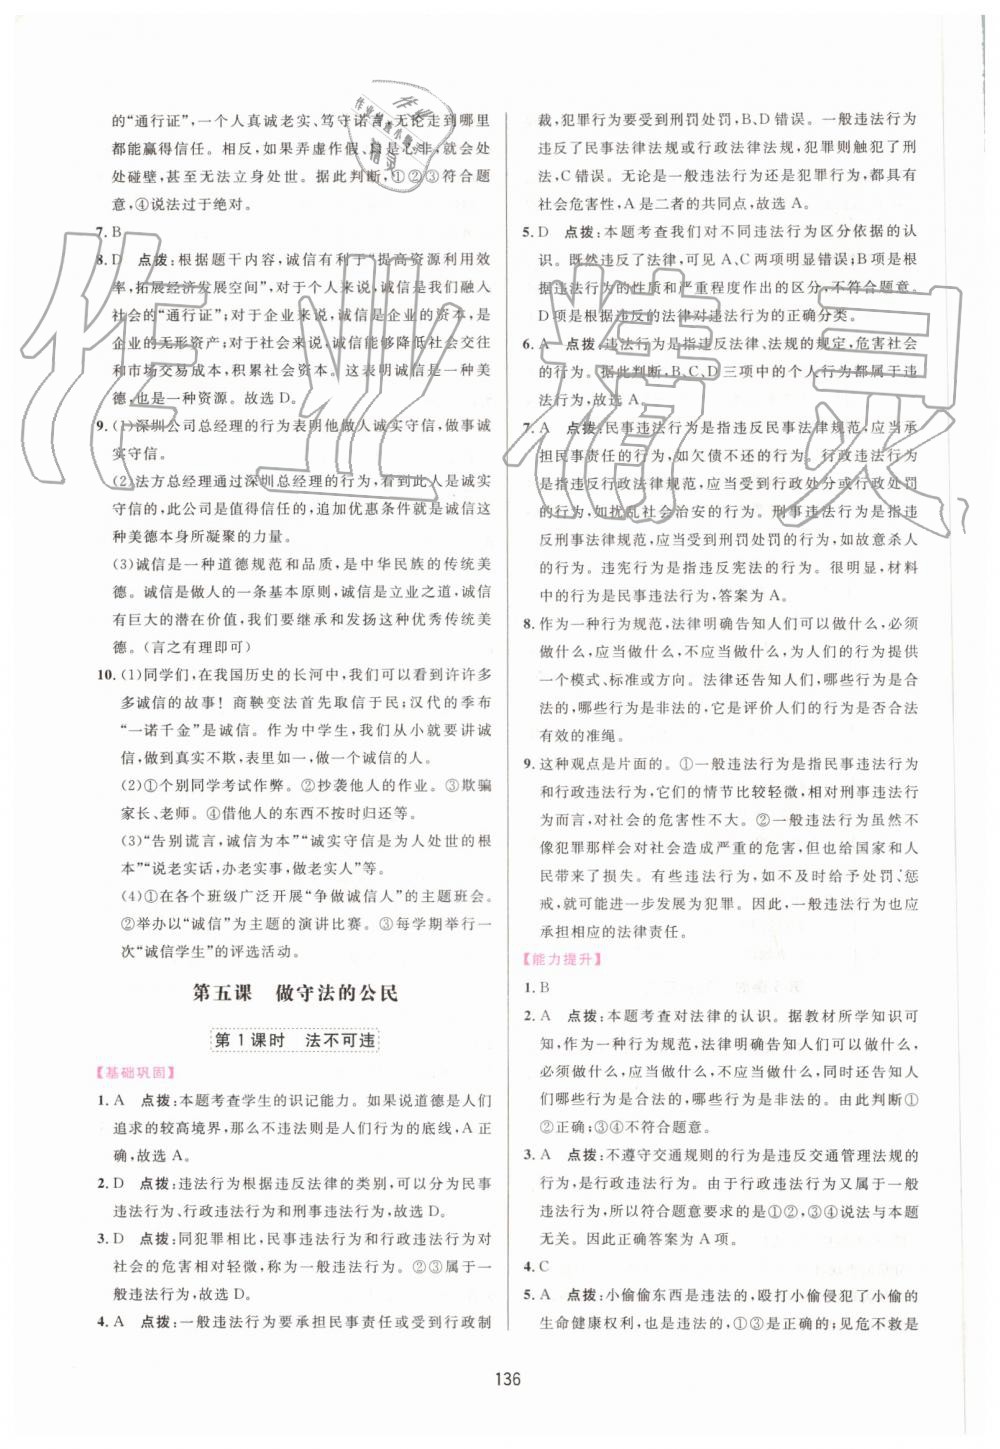 的“通行证”，一个人真诚老实、笃守诺言，无论走到哪里
都能赢得信任。相反，如果弄虚作假、口是心非，就会处
处碰壁，甚至无法立身处世。据此判断，①②③符合题
意，④说法过于绝对。
7. B
8. D　点拨：根据题干内容，诚信有利于“提高资源利用效
率，拓展经济发展空间”，对于个人来说，诚信是我们融入
社会的“通行证”；对于企业来说，诚信是企业的资本，是
企业的无形资产；对于社会来说，诚信能够降低社会交往
和市场交易成本，积累社会资本。这表明诚信是一种美
德，也是一种资源。故选 D。
9. (1)深圳公司总经理的行为表明他做人诚实守信，做事诚
实守信。
(2)法方总经理通过深圳总经理的行为，看到此人是诚实
守信的，此公司是值得信任的，追加优惠条件就是诚信这
种美德本身所凝聚的力量。
(3)诚信是一种道德规范和品质，是中华民族的传统美
德。诚信是做人的一条基本原则，诚信是立业之道，诚信
有巨大的潜在价值，我们要继承和发扬这种优秀传统美
德。(言之有理即可)
10. (1)同学们，在我国历史的长河中，我们可以看到许许多
多诚信的故事！商鞅变法首先取信于民；汉代的季布
“一诺千金”是诚信。作为中学生，我们从小就要讲诚
信，做到真实不欺，表里如一，做一个诚信的人。
(2)①个别同学考试作弊。②抄袭他人的作业。③欺骗
家长、老师。④借他人的东西不按时归还等。
(3)“告别谎言，诚信为本”“诚实守信是为人处世的根
本”“说老实话，办老实事，做老实人”等。
(4)①在各个班级广泛开展“争做诚信人”的主题班会。
②举办以“诚信”为主题的演讲比赛。③每学期举行一
次“诚信学生”的评选活动。
第五课　做守法的公民
第 1 课时　法不可违
【基础巩固】
1. A　点拨：本题考查学生的识记能力。如果说道德是人们
追求的较高境界，那么不违法则是人们的底线，A 正
确，故选 A。
2. D　点拨：违法行为根据违反法律的类别，可以分为民事
违法行为、行政违法行为和刑事违法行为，故选 D。
3. D　点拨：同犯罪相比，民事违法行为和行政违法行为对
社会的危害相对轻微，称为一般违法行为。②③属于一
般违法行为，故选 D。
4. A　点拨：一般违法行为要承担民事责任或受到行政制
裁，犯罪行为要受到刑罚处罚，B、D 错误。一般违法行为
违反了民事法律法规或行政法律法规，犯罪则触犯了刑
法，C 错误。无论是一般违法行为还是犯罪行为，都具有
社会危害性，A 是二者的共同点，故选 A。
5. D　点拨：本题考查我们对不同违法行为区分依据的认
识。既然违反了法律，可见 A、C 两项明显错误；B 项是
根据违法行为的性质和严重程度作出的区分，不符合题意。
D 项是根据违反的法律对违法行为的正确分类。
6. A　点拨：违法行为是指违反法律、法规的规定，危害社会
的行为。据此判断，B、C、D 三项中的个人行为都属于违
法行为，故选 A。
7. A　点拨：民事违法行为是指违反民事法律规范，应当承
担民事责任的行为，如欠债不还的行为。行政违法行为
是指违反行政法律规范，应受到行政处分或行政处罚的
行为，如扰乱社会治安的行为。刑事违法行为是指违
反刑事法律规范，应当受到刑罚处罚的行为，如故意杀人
的行为。违宪行为是指违反宪法的行为。很明显，材料
中的行为是民事违法行为，答案为 A。
8. 作为一种行为规范，法律明确告知人们可以做什么，必须
做什么，应当做什么，不应当做什么，为人们的行为提供
一个模式、标准或方向。法律还告知人们，哪些行为是合
法的，哪些行为是非法的，它是评价人们的行为是否合法
有效的准绳。
9. 这种观点是片面的。①一般违法行为是指民事违法行为
和行政违法行为，它们的情节比较轻微，相对刑事违法行
为而言，对社会的危害性不大。②一般违法行为虽然不
像犯罪那样会对社会造成严重的危害，但会给国家和人
民带来了损失。有些违法行为，如不及时给予处罚、惩
戒，就可能进一步发展为犯罪。因此，一般违法行为也应
承担相应的法律责任。
【能力提升】
1. B
2. A　点拨：本题考查对法律的认识。据教材所学知识可
知，作为一种行为规范，法律明确告知人们可以做什么，
必须做什么，应当做什么，不应当做什么，同时还告知人
们哪些行为是合法的，哪些行为是非法的。由此判断①
②正确；③④不符合题意。
3. A　点拨：不遵守交通规则的行为是违反交通管理法规的
行为，属于行政违法行为。由于行政违法行为又属于一般
违法行为，所以符合题意要求的是①②，③④说法与本题
无关。因此正确答案为 A 项。
4. C
5. A　点拨：小偷偷东西是违法的，殴打小偷侵犯了小偷的
生命健康权利，也是违法的，①③是正确的；见危不救是
136
作业精灵